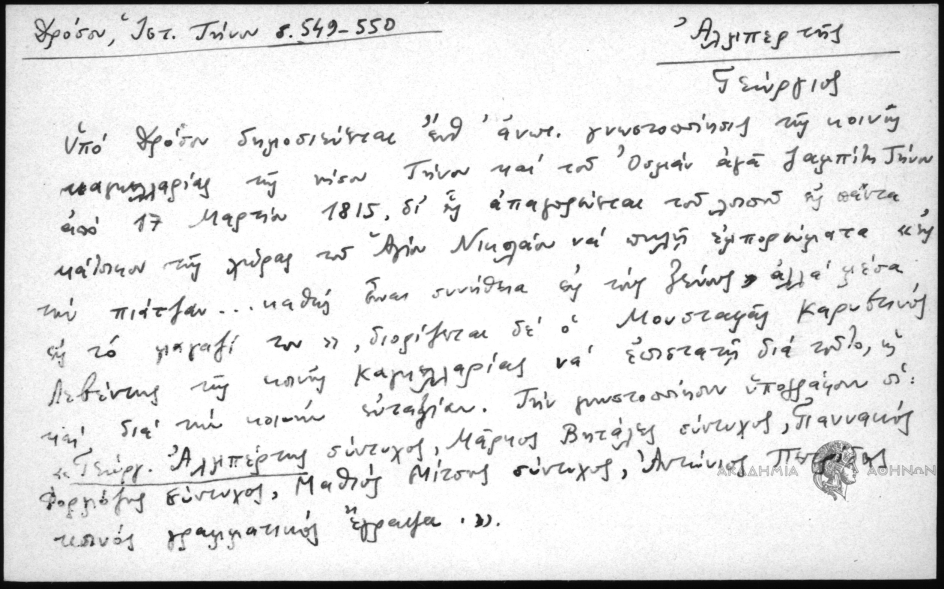 Δρόσου, Ἱστ. Τήνου σ. 549-550
Ἀλιμπέρτης
Γεώργιος
Ὑπό Δρόσου δημοσιεύεται ἐνθ' ἄνωτ. γνωστοποίησις τῆς κοινῆς
καγκελλαρίας τῆς νήσου Τήνου καί τοῦ Ὀσμάν ἀγᾶ ζαμπίτη Τήνου
ἀπό 17 Μαρτίου 1815, δι' ἧς ἀπαγορεύεται τοῦ λοιποῦ εἰς πάντα
κάτοικον τῆς χώρας τοῦ Ἁγίου Νικολάου νά πωλῇ ἐμπορεύματα «εἰς
τήν πιάτζαν ... καθώς εἶναι συνήθεια εἰς τούς ξένους» ἀλλά μέσα
εἰς τό μαγαζί του», διορίζεται δέ ὁ Μουσταφᾶς Καρυστινός
Λεβέντης τῆς κοινῆς Καγκελλαρίας νά ἐπιστατῇ διά τοῦτο, ὡς
καί διά τήν κοινήν εὐταξίαν. Τήν γνωστοποίησιν ὑπογράφουν οἱ:
«Γεώργ. Ἀλιμπέρτης σύντυχος, Μάρκος Βητάλης σύντυχος, Γιαννακός
σύντυχος, Μαθιός Μίτσος σύντυχος, Ἀντώνιος
κοινός γραμματικός ἔγραψα.».
ΑΚΑΔΗΜΙΑ ΑΘΗΝΩΝ